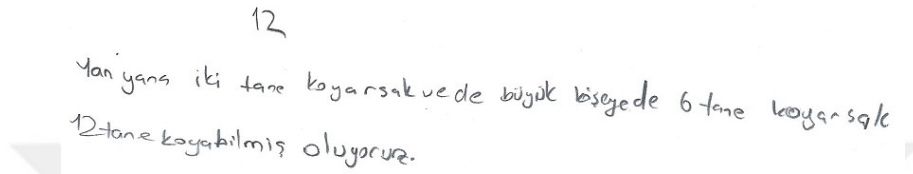 12
Yan yana iki tane koyarsak ve de büyük bişeyede 6 tane koyarsak
12 tane koyabilmiş oluyoruz.